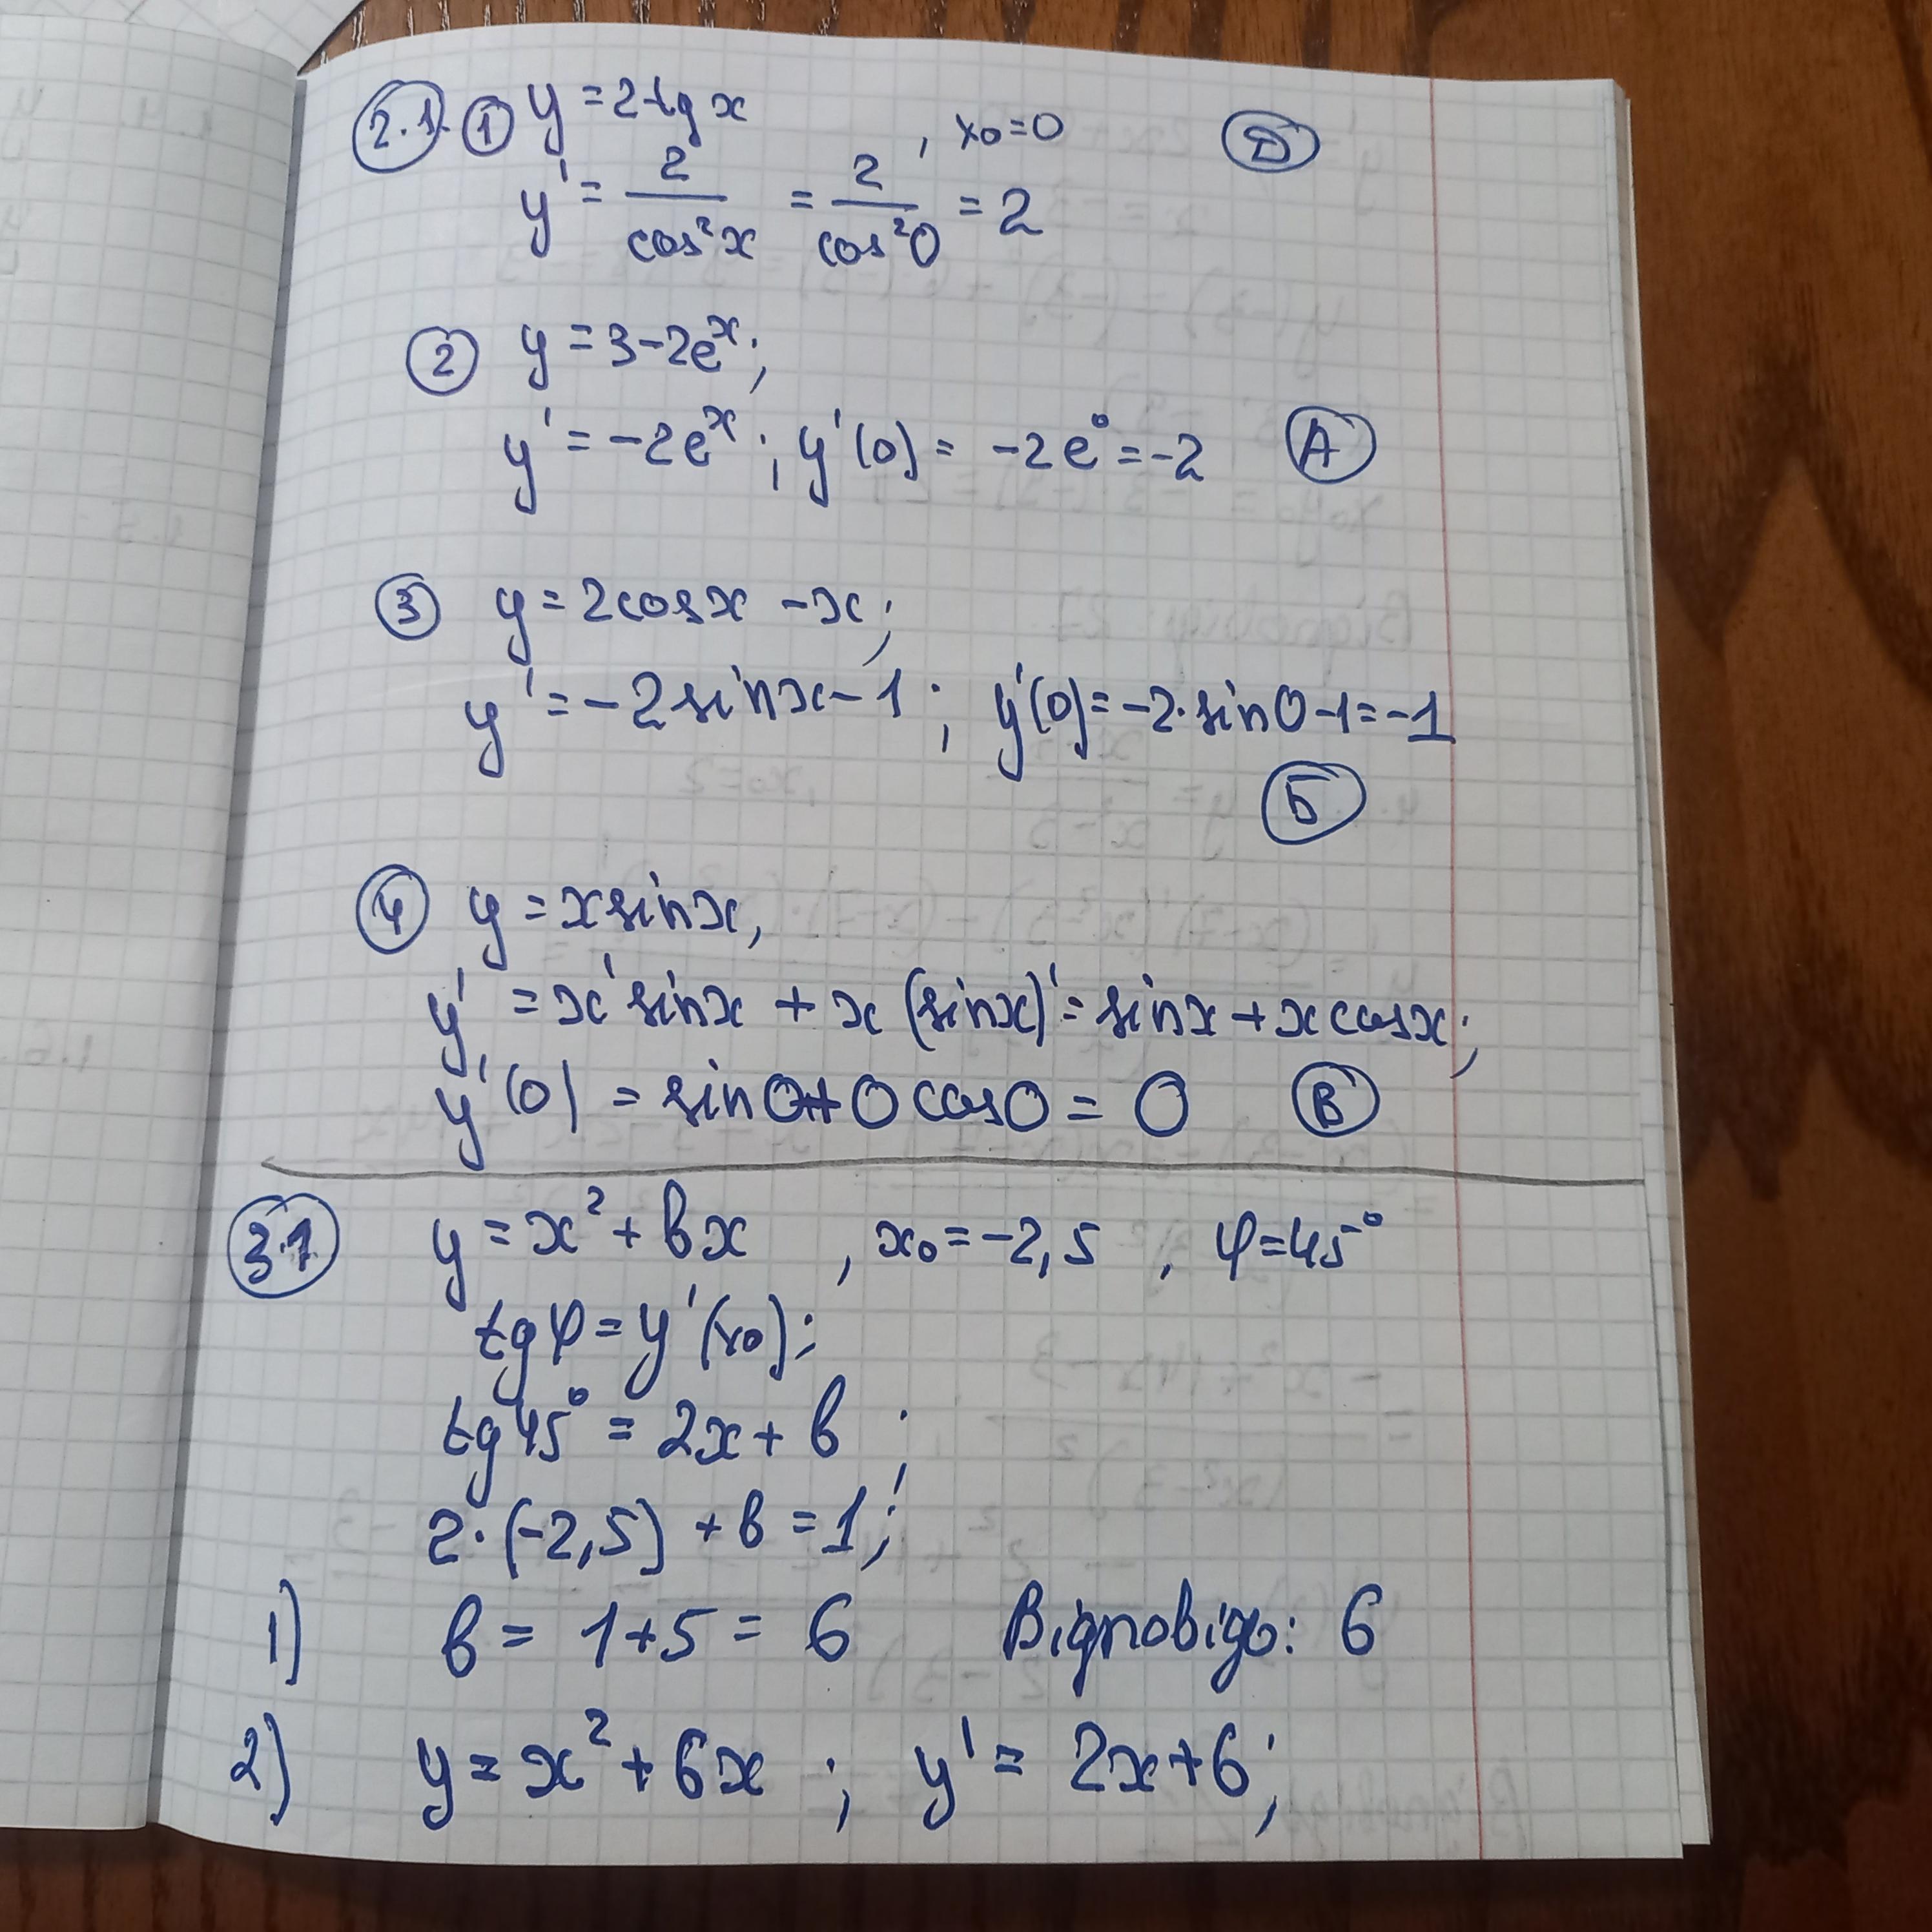 2.1. 1 y = 2tg x , x0=0 Д
y' = 2/cos²x = 2/cos²0 = 2
2 y = 3-2eˣ;
y' = -2eˣ; y'(0) = -2e⁰ = -2 А
3 y = 2cosx - x;
y' = -2sinx - 1; y'(0) = -2·sin0-1=-1
Б
4 y = xsinx,
y' = x'sinx + x(sinx)' = sinx + xcosx;
y'(0) = sin0+0cos0 = 0 В
3.1 y = x² + bx , x0 = -2,5 , φ=45°
tgφ = y'(x0);
tg45° = 2x + b ;
2·(-2,5) + b = 1;
1) b = 1+5 = 6 Відповідь: 6
2) y = x² + 6x ; y' = 2x+6;